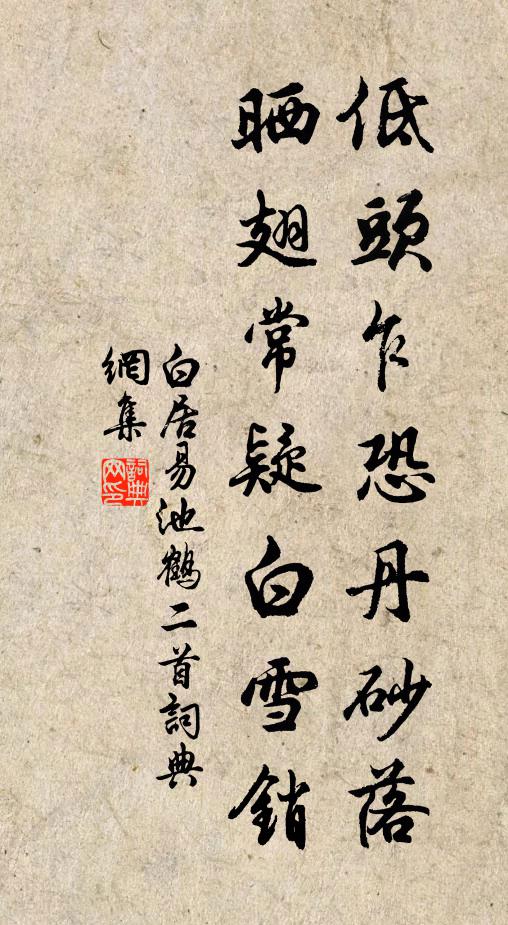 低頭乍恐丹砂落
晒翅常疑白雪銷
白居易池鶴二首詞典
網集
詞典
网印